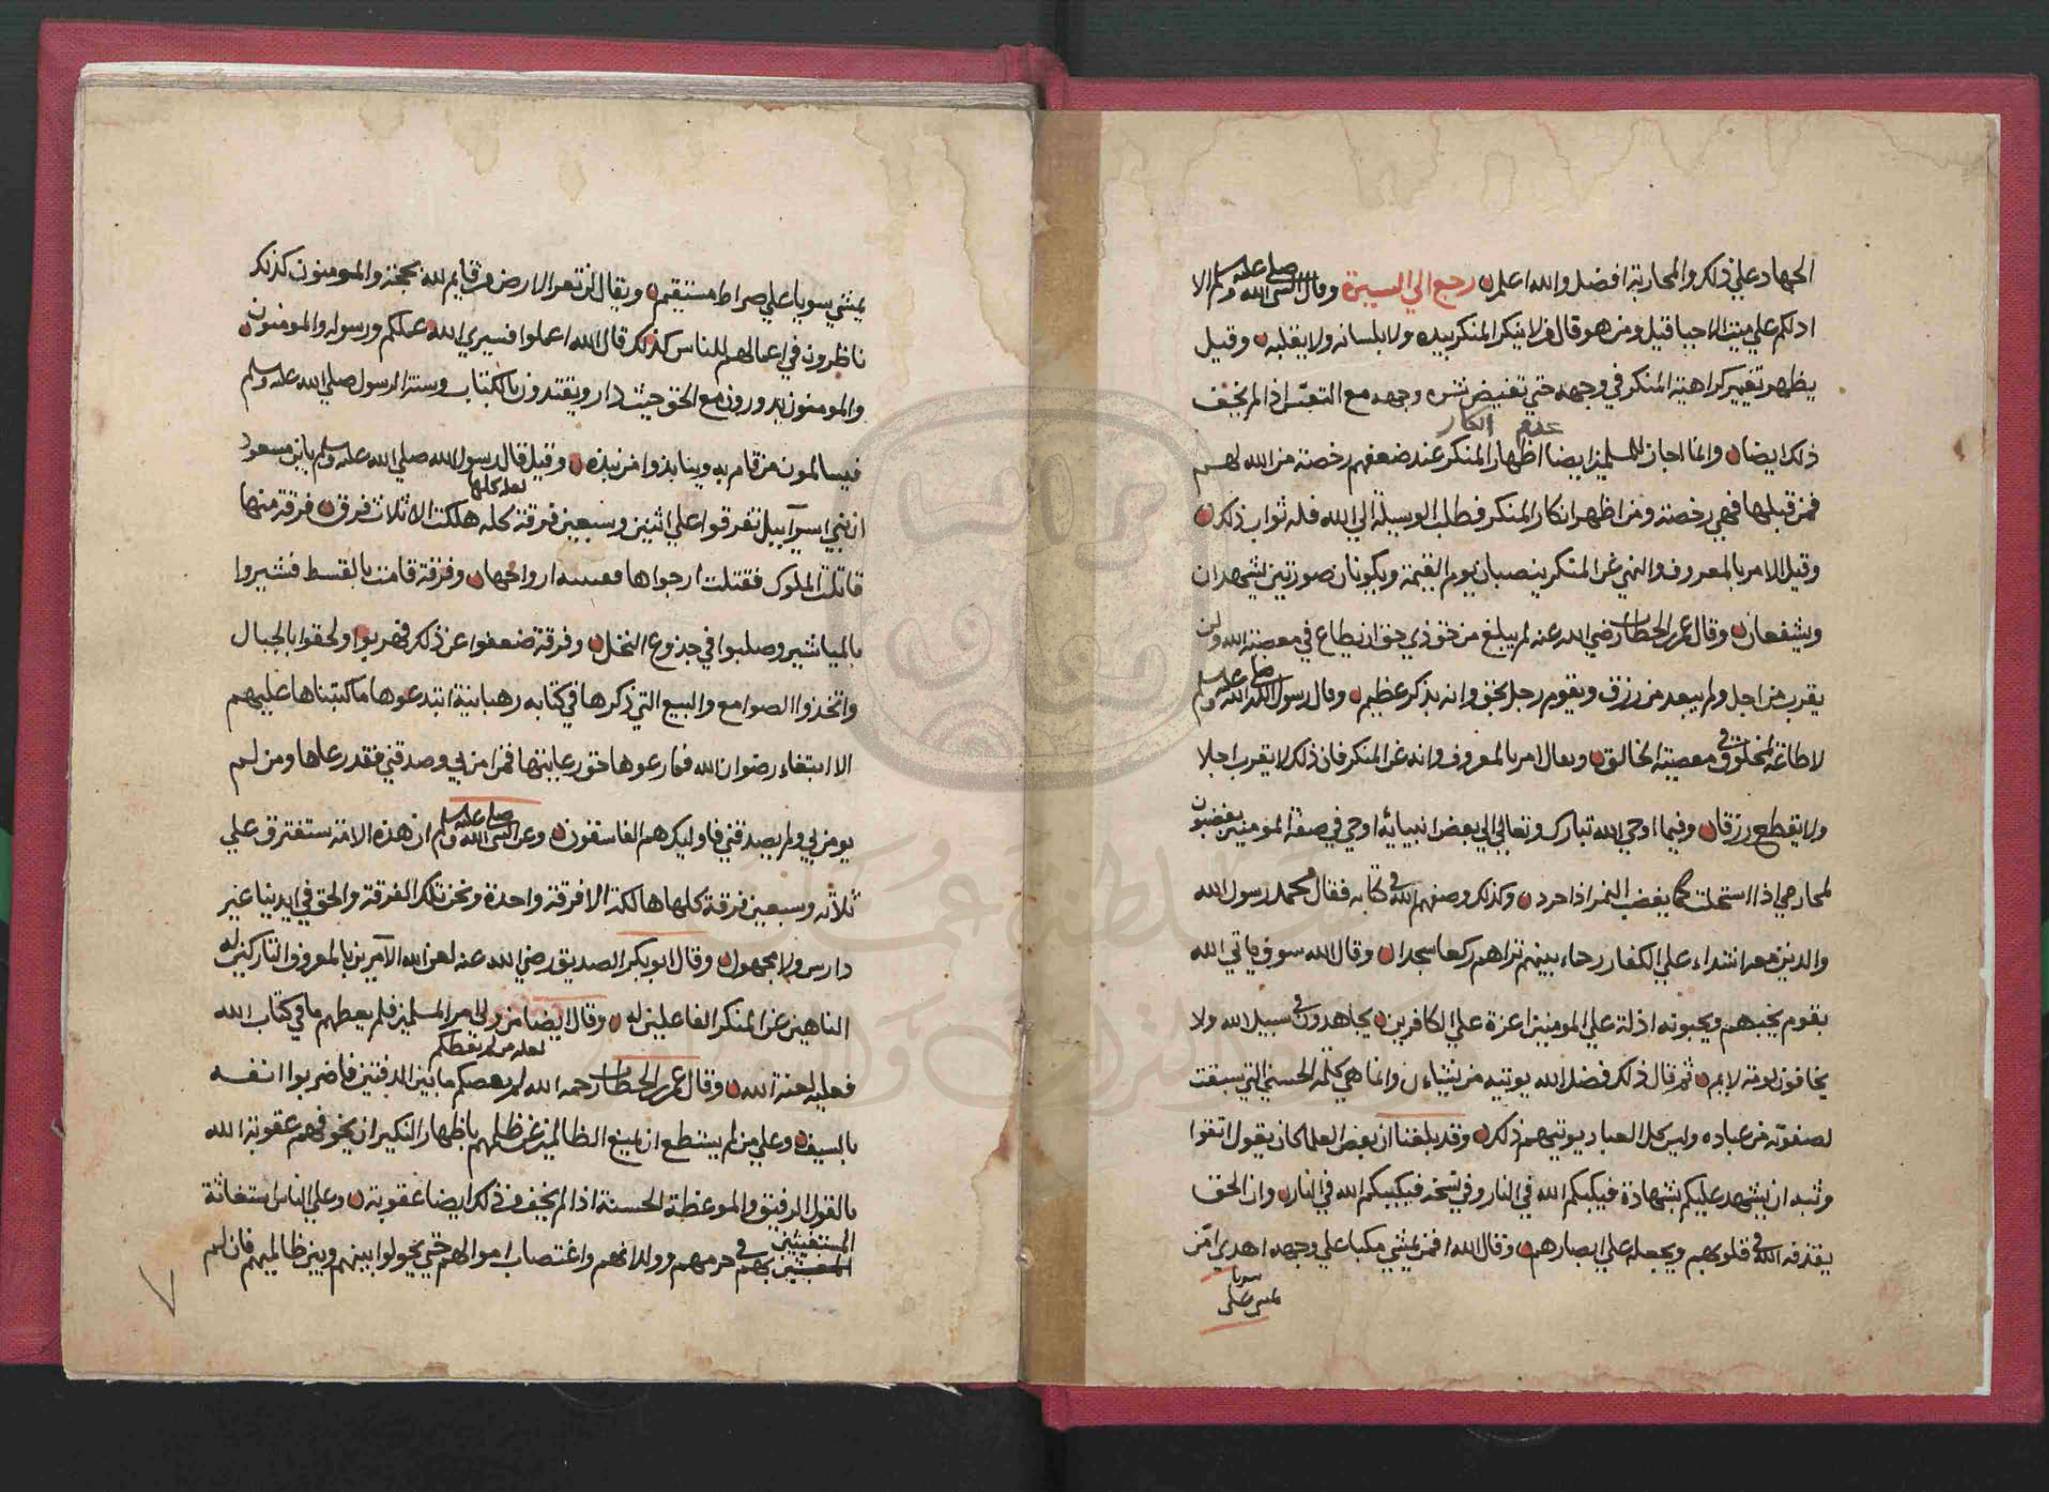 الجهاد علي ذلك والمحاربة افضل والله اعلم رجع الي السيرة وقال النبي صلي الله عليه وسلم الا
ادلكم علي ميت الاحيا قيل ومن هو قال من لا ينكر المنكر بيده ولا بلسانه ولا بقلبه وقيل
يظهر تغيير كراهية المنكر في وجهه حتي وجهه مع اذا لم يخف
عدم انكار
ذلك ايضا وانما اجاز للمسلمين ايضا اظهار المنكر عند ضعفهم رخصة من الله لهم
فمن قبلها فهي رخصة ومن اظهر انكار المنكر فطلب الوسيلة الي الله فله ثواب ذلك
وقيل الامر بالمعروف والنهي عن المنكر ينصبان يوم القيمة ويكونان صورتين يشهدان
ويشفعان وقال عمر بن الخطاب رضي الله عنه لم يبلغ من حق ذي حق ان يطاع في معصية الله ولن
يقرب من اجل ولم يبعد من رزق ويقوم رجل بحق وانه يذكر عظيم وقال رسول الله صلي الله عليه وسلم
لا طاعة لمخلوق في معصية الخالق ويقال امر بالمعروف وانه عن المنكر فان ذلك لا يقرب اجلا
ولا يقطع رزقا وفيما اوحي الله تبارك وتعالي الي بعض انبيائه اوحي في صفة المومنين يغضبون
لمحارمي اذا استحلت كما يغضب النمر اذا حرد وكذلك وصفهم الله في كتابه فقال محمد رسول الله
والذين معه اشداء علي الكفار رحماء بينهم تراهم ركعا سجدا وقال الله سوف ياتي الله
بقوم يحبهم ويحبونه اذلة علي المومنين اعزة علي الكافرين يجاهدون في سبيل الله ولا
يخافون لومة لايم ثم قال ذلك فضل الله يوتيه من يشاء وانما هي كلمة الحسني التي سبقت
لصفوته من عباده وليس كل العباد يوتيهم ذلك وقد بلغنا ان بعض العلما كان يقول اتقوا
ان يشهد عليكم بشهادة فيكبكم الله في النار وفي نسخه فيكببكم الله في النار وان الحق
يقذفه الله في قلوبهم ويجعله علي ابصارهم وقال الله افمن يمشي مكبا علي وجهه اهدي امن
يمشي سويا علي
يمشي سويا علي صراط مستقيم ويقال لن تعر الارض من قايم لله بحجة والمومنون كذلك
ناظرون في اعمالهم للناس كذلك قال الله اعملوا فسيري الله عملكم ورسوله والمومنون
والمومنون يدورون مع الحق حيث دار ويقتدون بالكتاب وسنة الرسول صلي الله عليه وسلم
فيسالمون من قام به وينابذوا من نبذه وقيل قال رسول الله صلي الله عليه وسلم يا بن مسعود
لعله كلها
ان بني اسرآييل تفرقوا علي اثنين وسبعين فرقة كله هلكت الا ثلاث فرق فرقة منها
قاتلت الملوك فقتلت ارواحها وفرقة قامت بالقسط فنشروا
بالمياشير وصلبوا في جذوع النخل وفرقة ضعفوا عن ذلك فهربوا ولحقوا بالجبال
واتخذوا الصوامع والبيع التي ذكرها في كتابه رهبانية ابتدعوها ما كتبناها عليهم
الا ابتغاء رضوان الله فما رعوها حق رعايتها فمن امن بي وصدقني فقد رعاها ومن لم
يومن بي ولم يصدقني فاوليك هم الفاسقون وعن النبي صلي الله عليه وسلم ان هذه الامة ستفترق علي
ثلاثه وسبعين فرقة كلها هالكة الا فرقة واحدة ونحن تلك الفرقة والحق في ايدينا غير
دارس ولا مجهول وقال ابو بكر الصديق رضي الله عنه لعن الله الآمرين بالمعروف التاركين له
الناهين عن المنكر الفاعلين له وقال ايضا من ولي امر المسلمين فلم يعطهم ما في كتاب الله
لعله من لم يعطكم
فعليه لعنة الله وقال عمر بن الخطاب رحمه الله لم يعصكم ما بين الدفتين فاضربوا انفه
بالسيف وعلي من لم يستطع ان يمنع الظالمين عن ظلمهم باظهار النكير ان يخوفهم عقوبة الله
بالقول الرفيق والموعظة الحسنة اذا لم يخف في ذلك ايضا عقوبة وعلي الناس استغاثة
المستغيثين
بهم في حرمهم وولدانهم واغتصاب اموالهم حتي يحولوا بينهم وبين ظالميهم فان لم